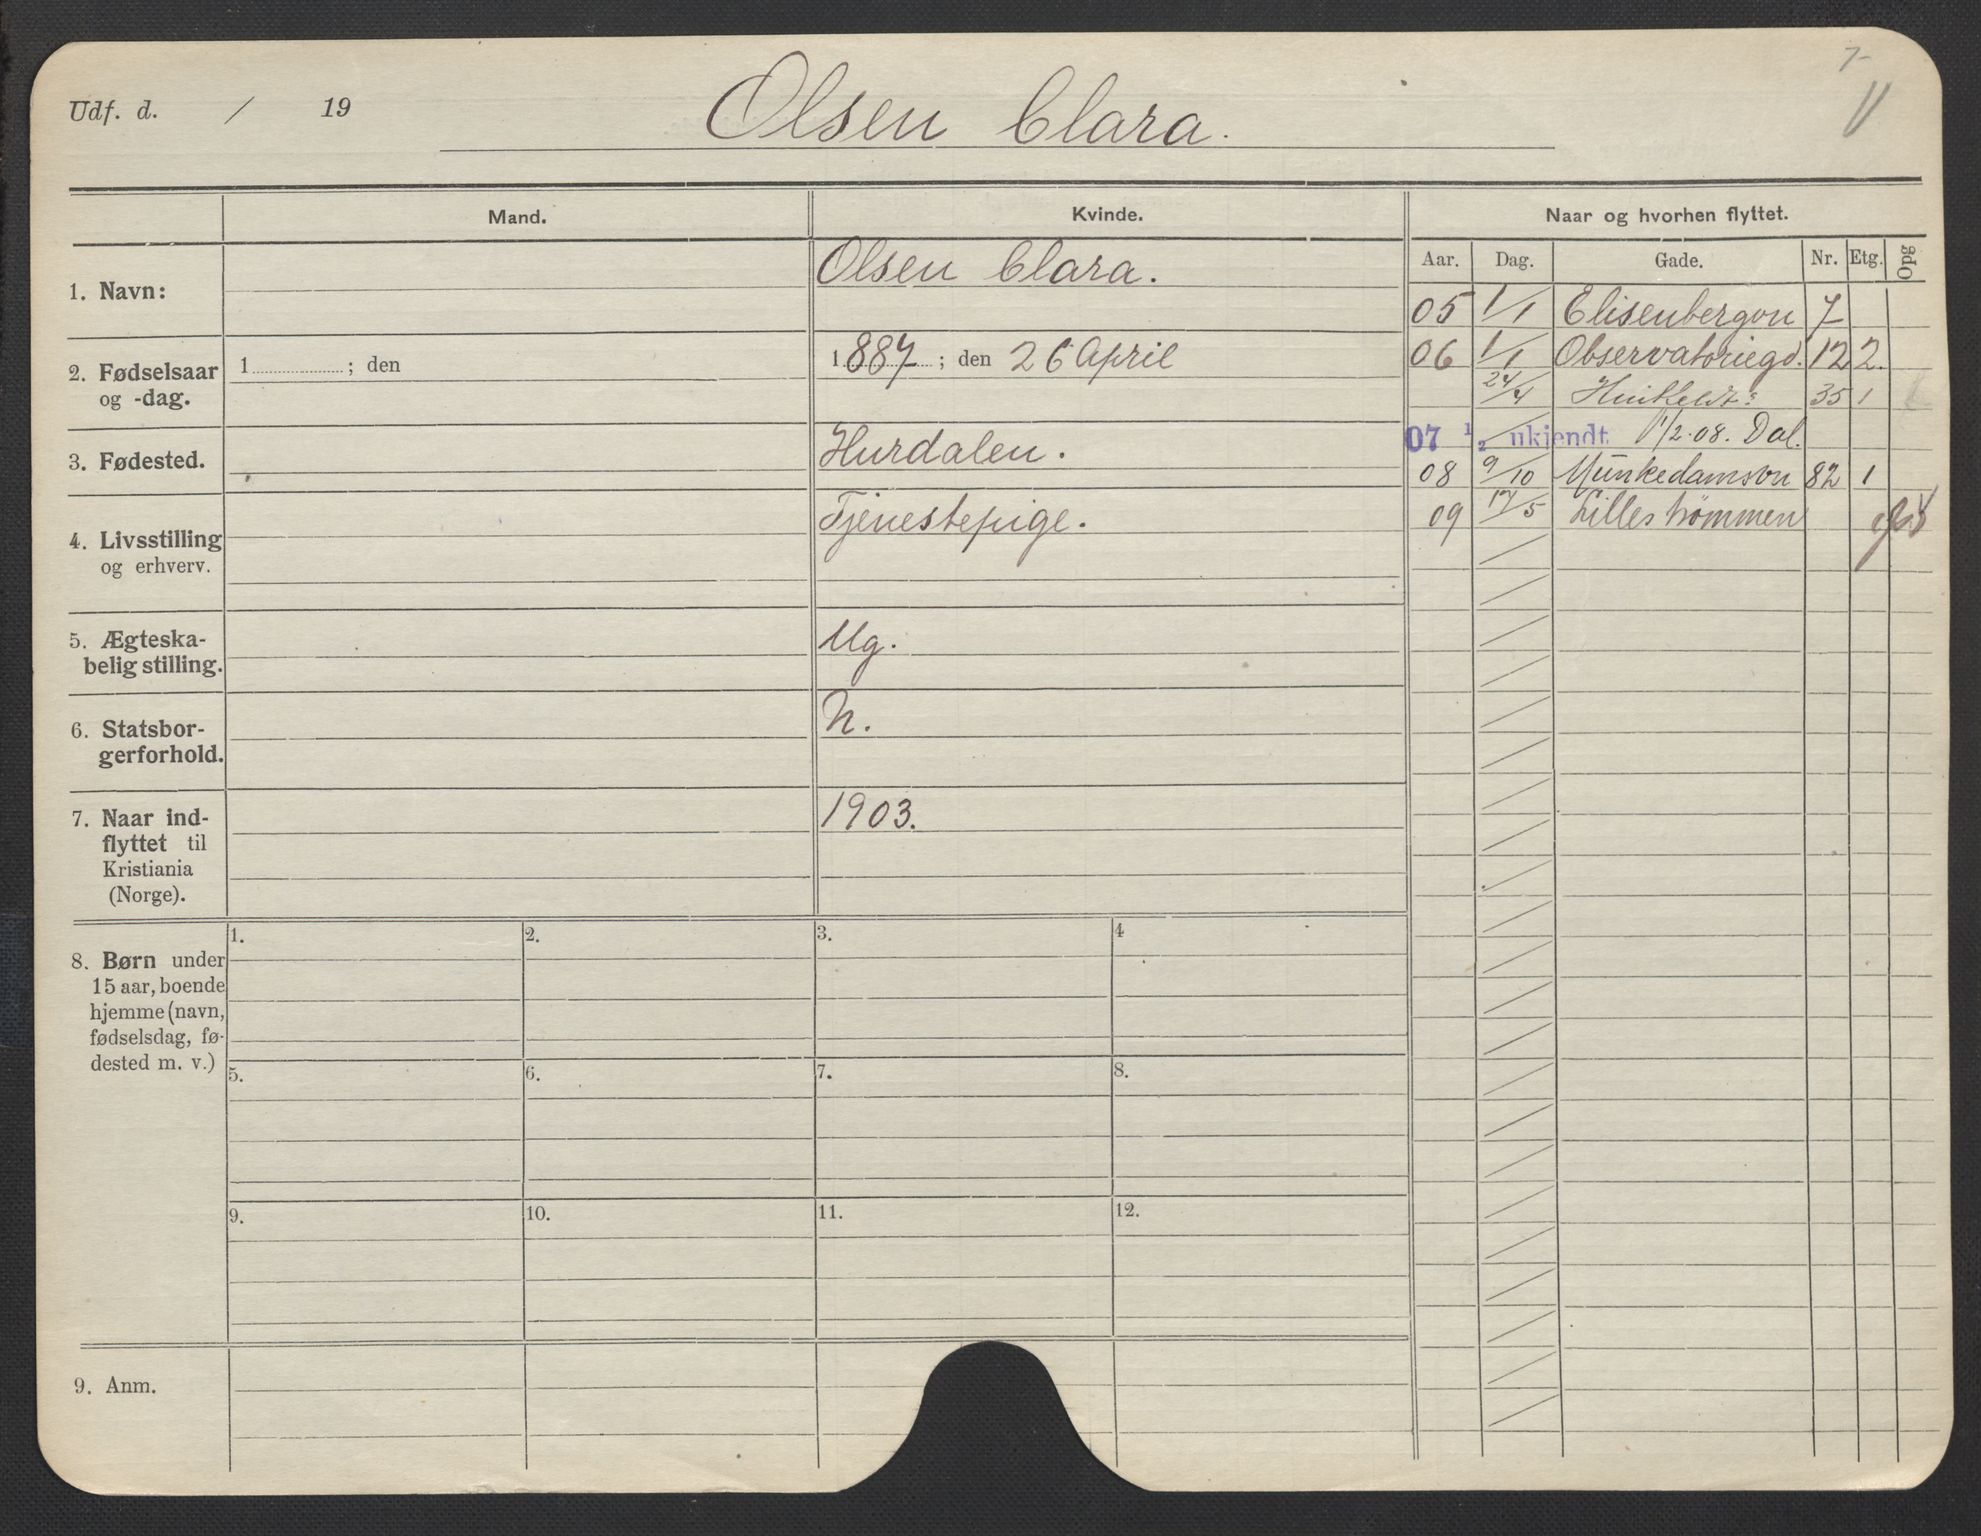 Udf. d. / 19
Olsen Clara.
Mand.
Kvinde.
Naar og hvorhen flyttet.
Aar. Dag. Gade. Nr. Etg. Opg
1. Navn:
Olsen Clara.
2. Fødselsaar
og -dag.
1 ; den
1887 ; den 26 April
3. Fødested.
Hurdalen.
4. Livsstilling
og erhverv.
Tjenestepige.
5. Ægteska-
belig stilling.
Ug.
6. Statsbor-
gerforhold.
N.
7. Naar ind-
flyttet til
Kristiania
(Norge).
1903.
05 1/1 Elisenbergvn 7
06 1/1 Observatoriegd. 12 2.
24/4 35 1
07 1/2 ukjendt 1/2.08. Dal.
08 9/10 Munkedamsvn 82 1
09 17/5 Lillestrømmen
8. Børn under
15 aar, boende
hjemme (navn,
fødselsdag, fø-
dested m. v.)
1. 2. 3. 4
5. 6. 7. 8.
9. 10. 11. 12.
9. Anm.